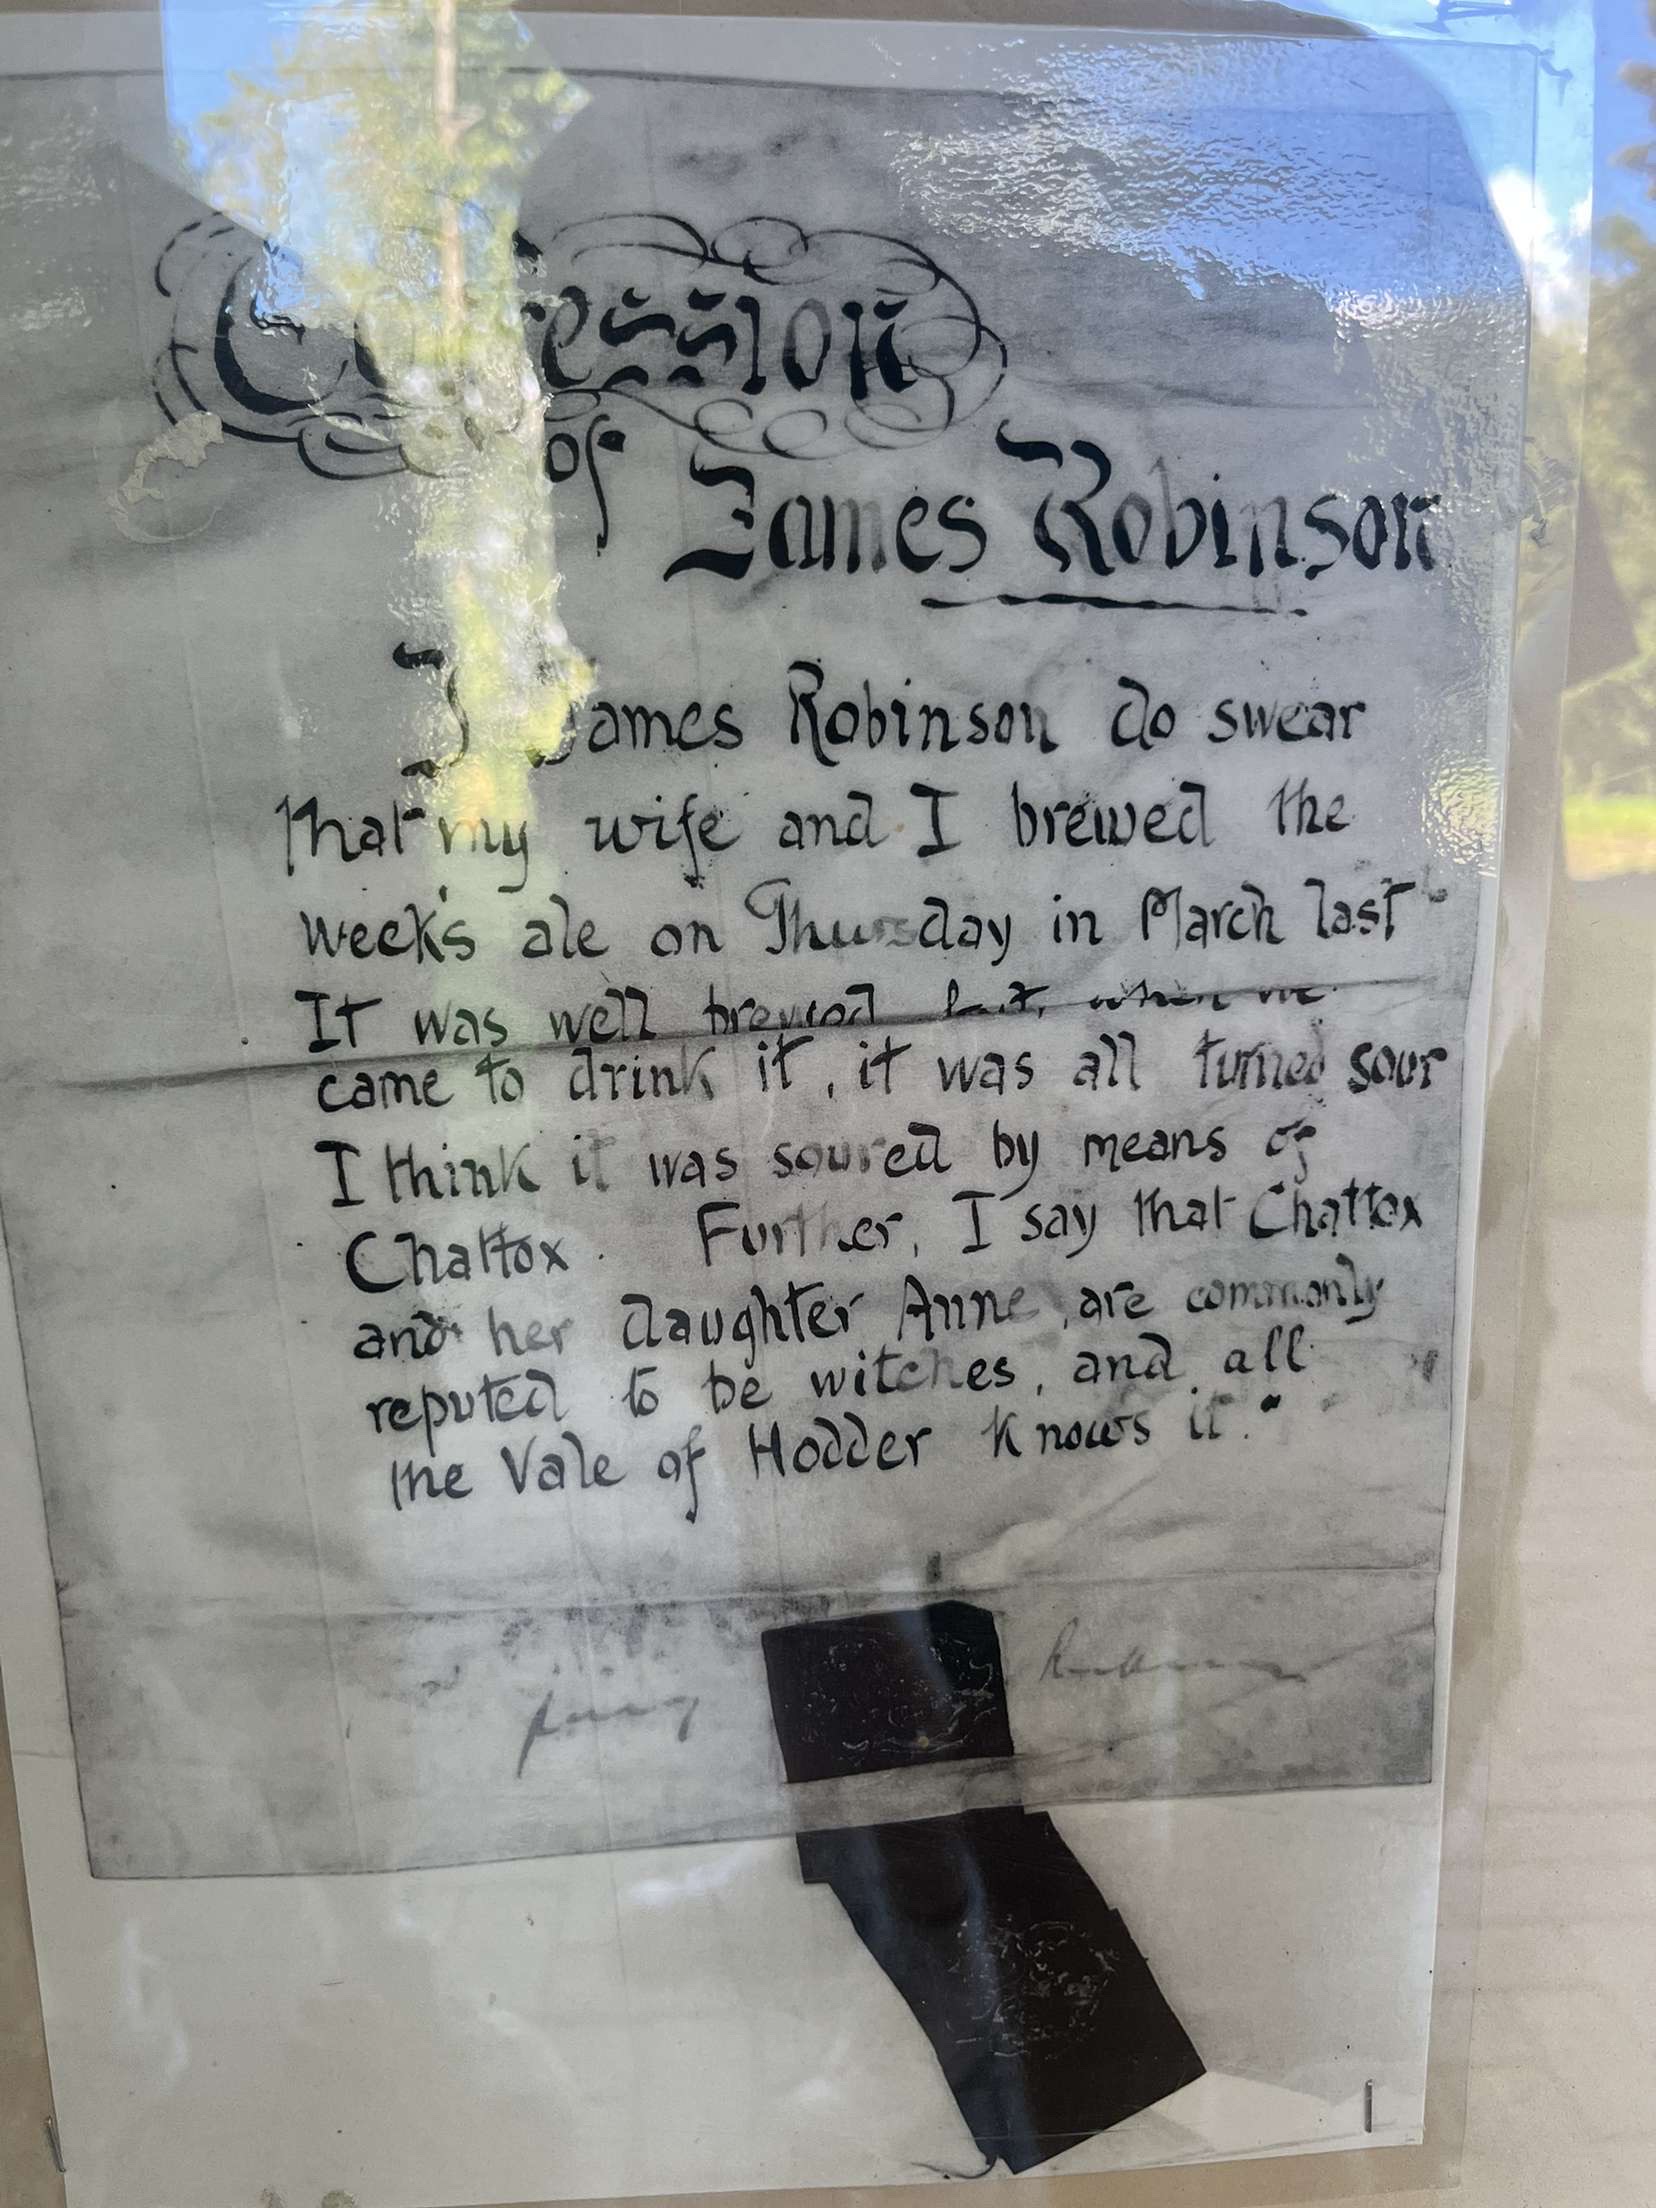 Confession
of
James Robinson
I James Robinson do swear
that my wife and I brewed the
week's ale on Thursday in March last
It was well brewed but, when we
came to drink it, it was all turned sour
I think it was soured by means of
Chattox. Further, I say that Chattox
and her daughter Anne, are commonly
reputed to be witches, and all
the Vale of Hodder knows it."